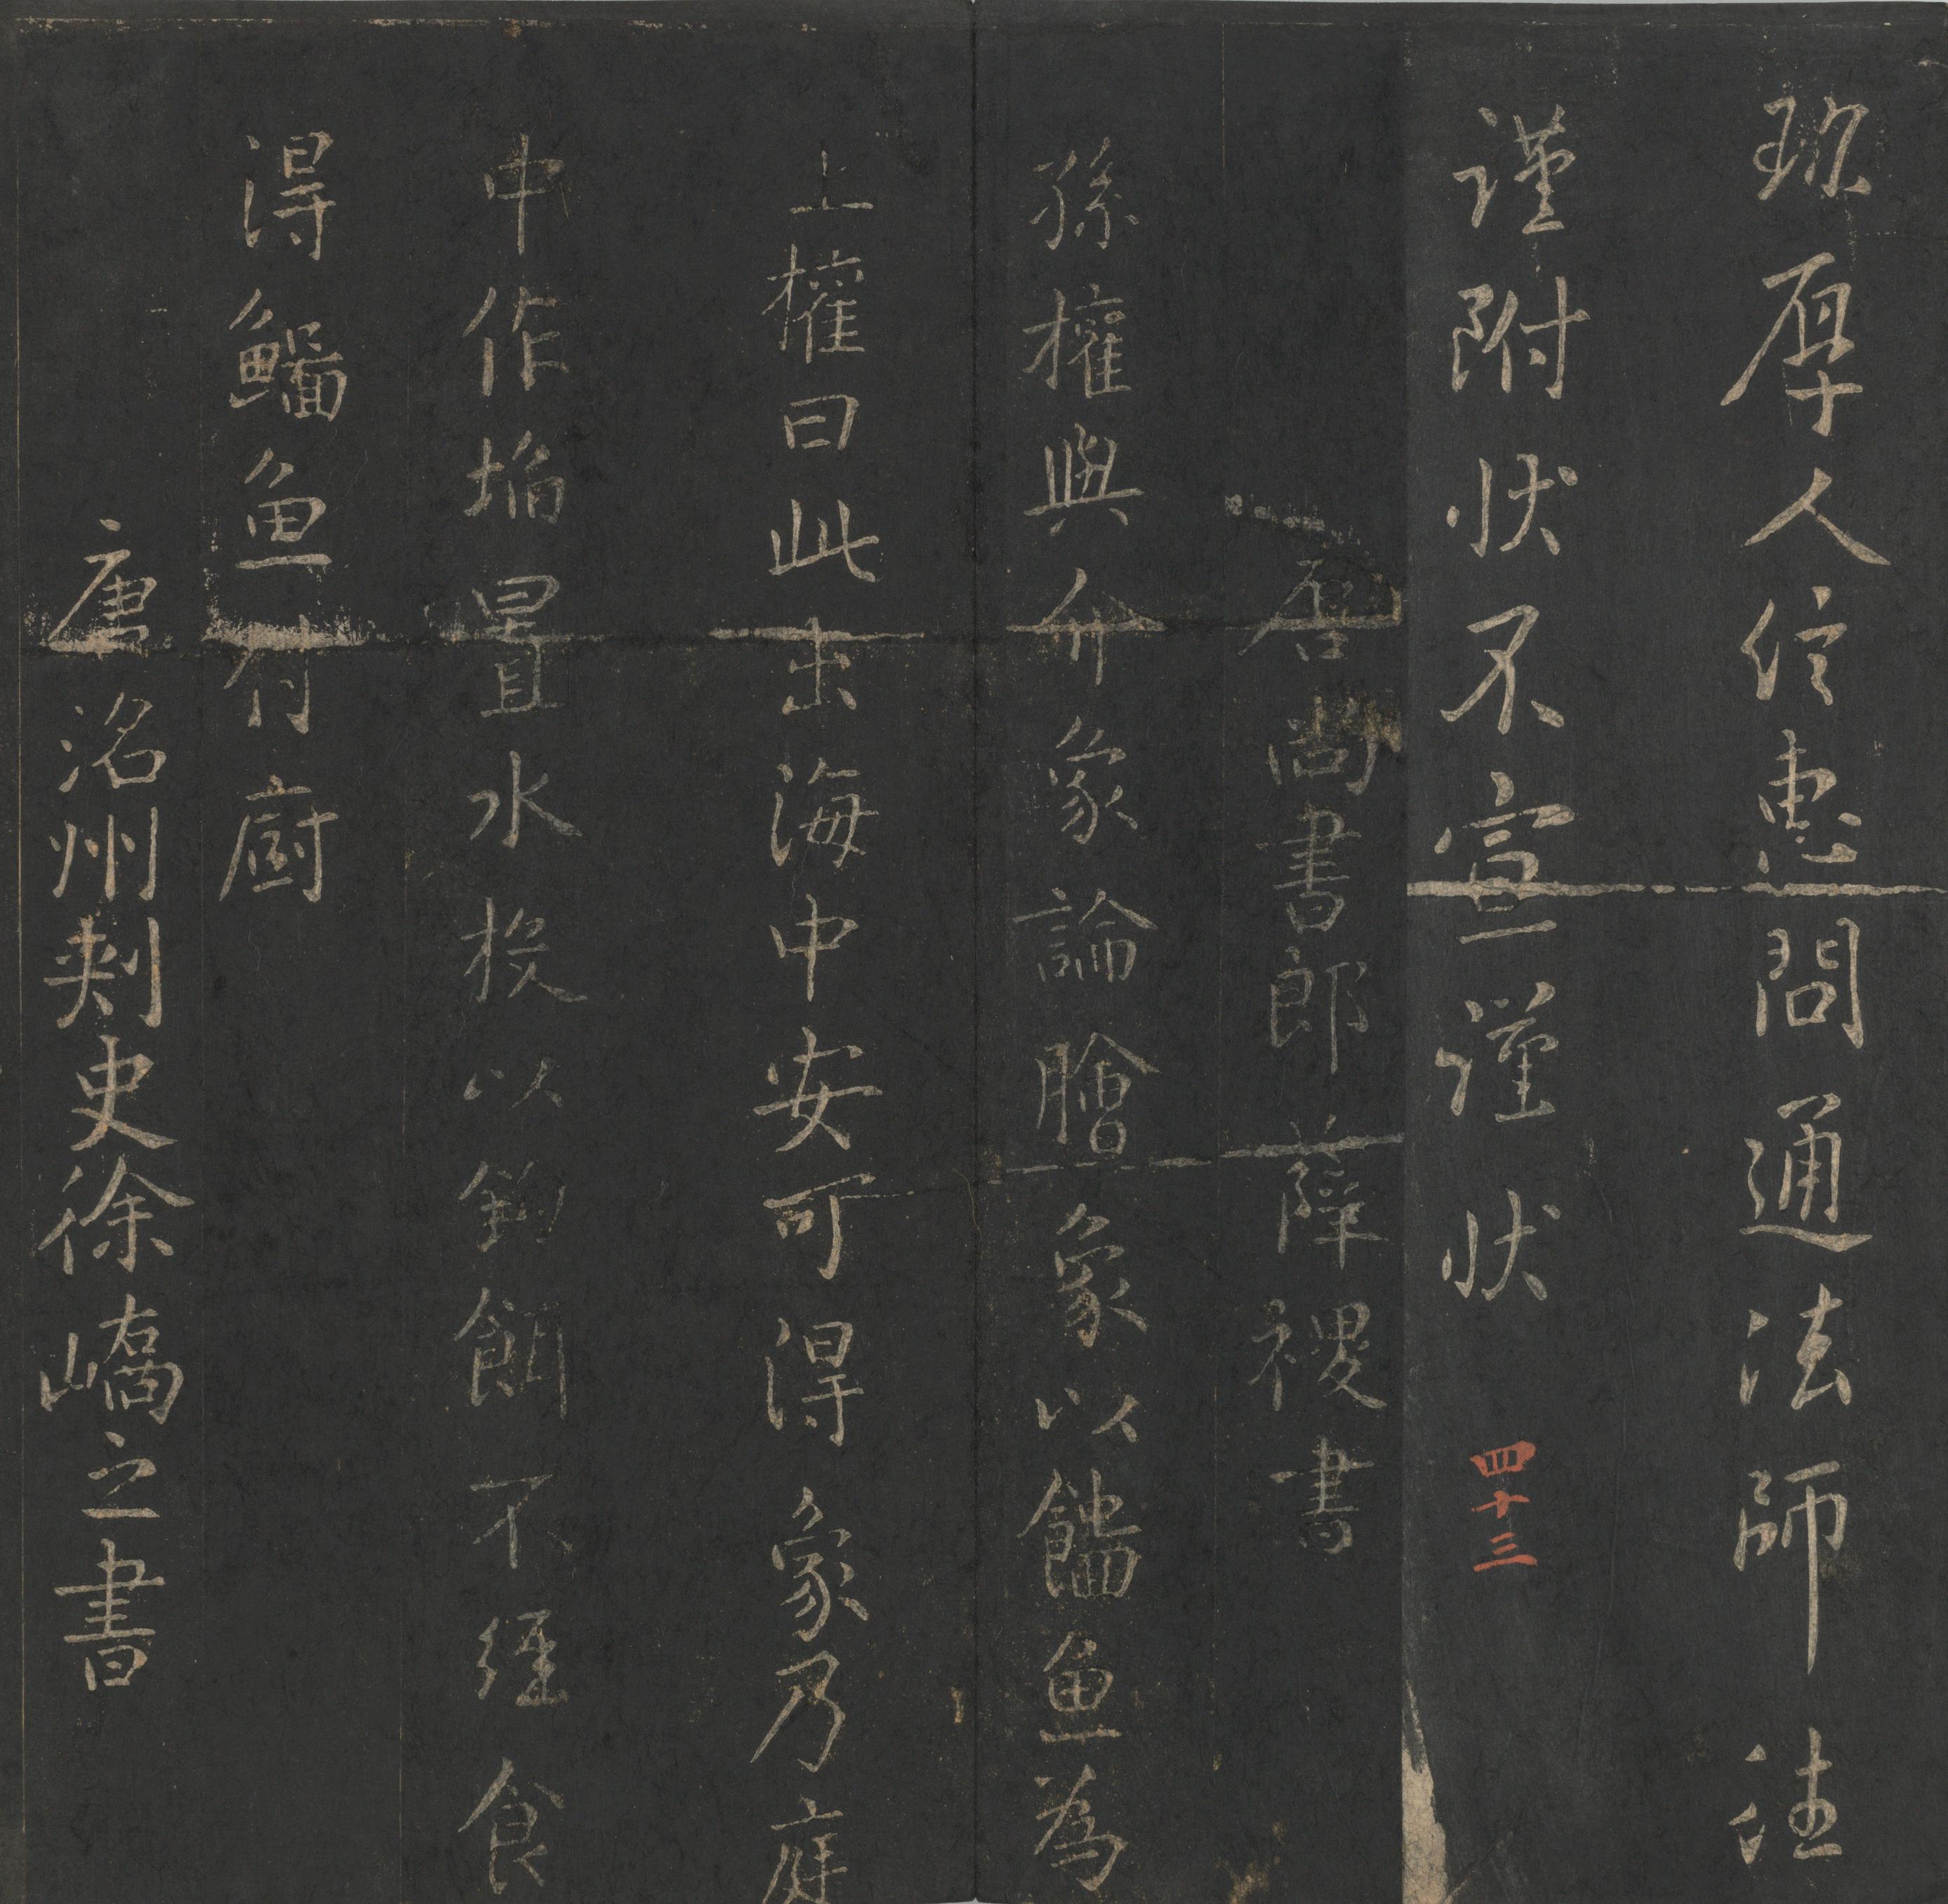 珎厚人信惠問通法師往
謹附狀不宣謹狀
四十三
唐尚書郎薛稷書
孫權與介象論膾象以鯔魚為
上權曰此出海中安可得象乃庭
中作埳置水投以鉤餌不經食
得鯔魚付廚
唐洺州刺史徐嶠之書